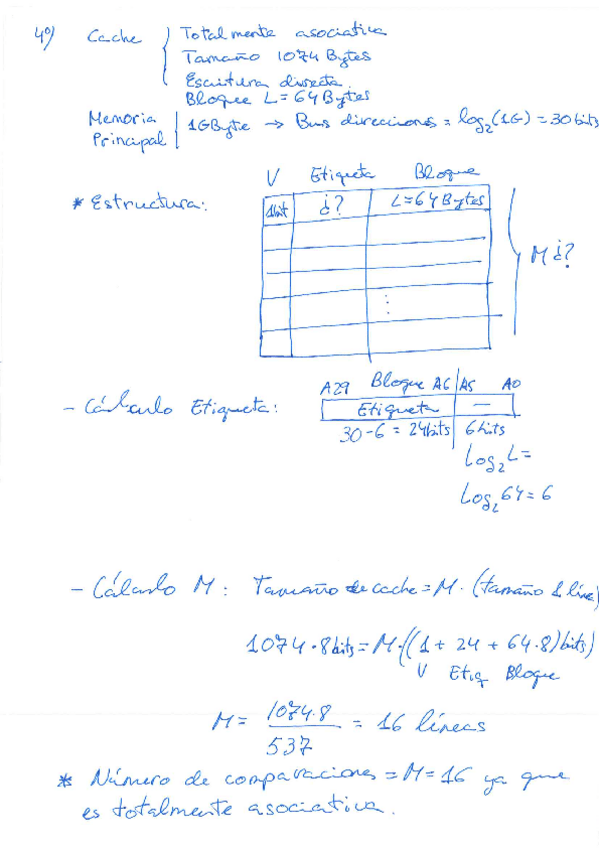 4º) Cache Totalmente asociativa
Tamaño 1074 Bytes
Escritura directa
Bloque L=64Bytes
Memoria Principal 1GByte → Bus direcciones = log₂(1G) = 30bits
V Etiqueta Bloque
* Estructura: 1bit ¿? L=64Bytes
M ¿?
A29 Bloque A6 A5 A0
- Cálculo Etiqueta: Etiqueta —
30-6 = 24bits 6bits
Log₂L=
Log₂64=6
- Cálculo M: Tamaño de cache = M · (tamaño 1 línea)
1074·8bits = M·((1 + 24 + 64·8)bits)
V Etiq Bloque
M = 1074·8 / 537 = 16 líneas
* Número de comparaciones = M = 16 ya que
es totalmente asociativa.